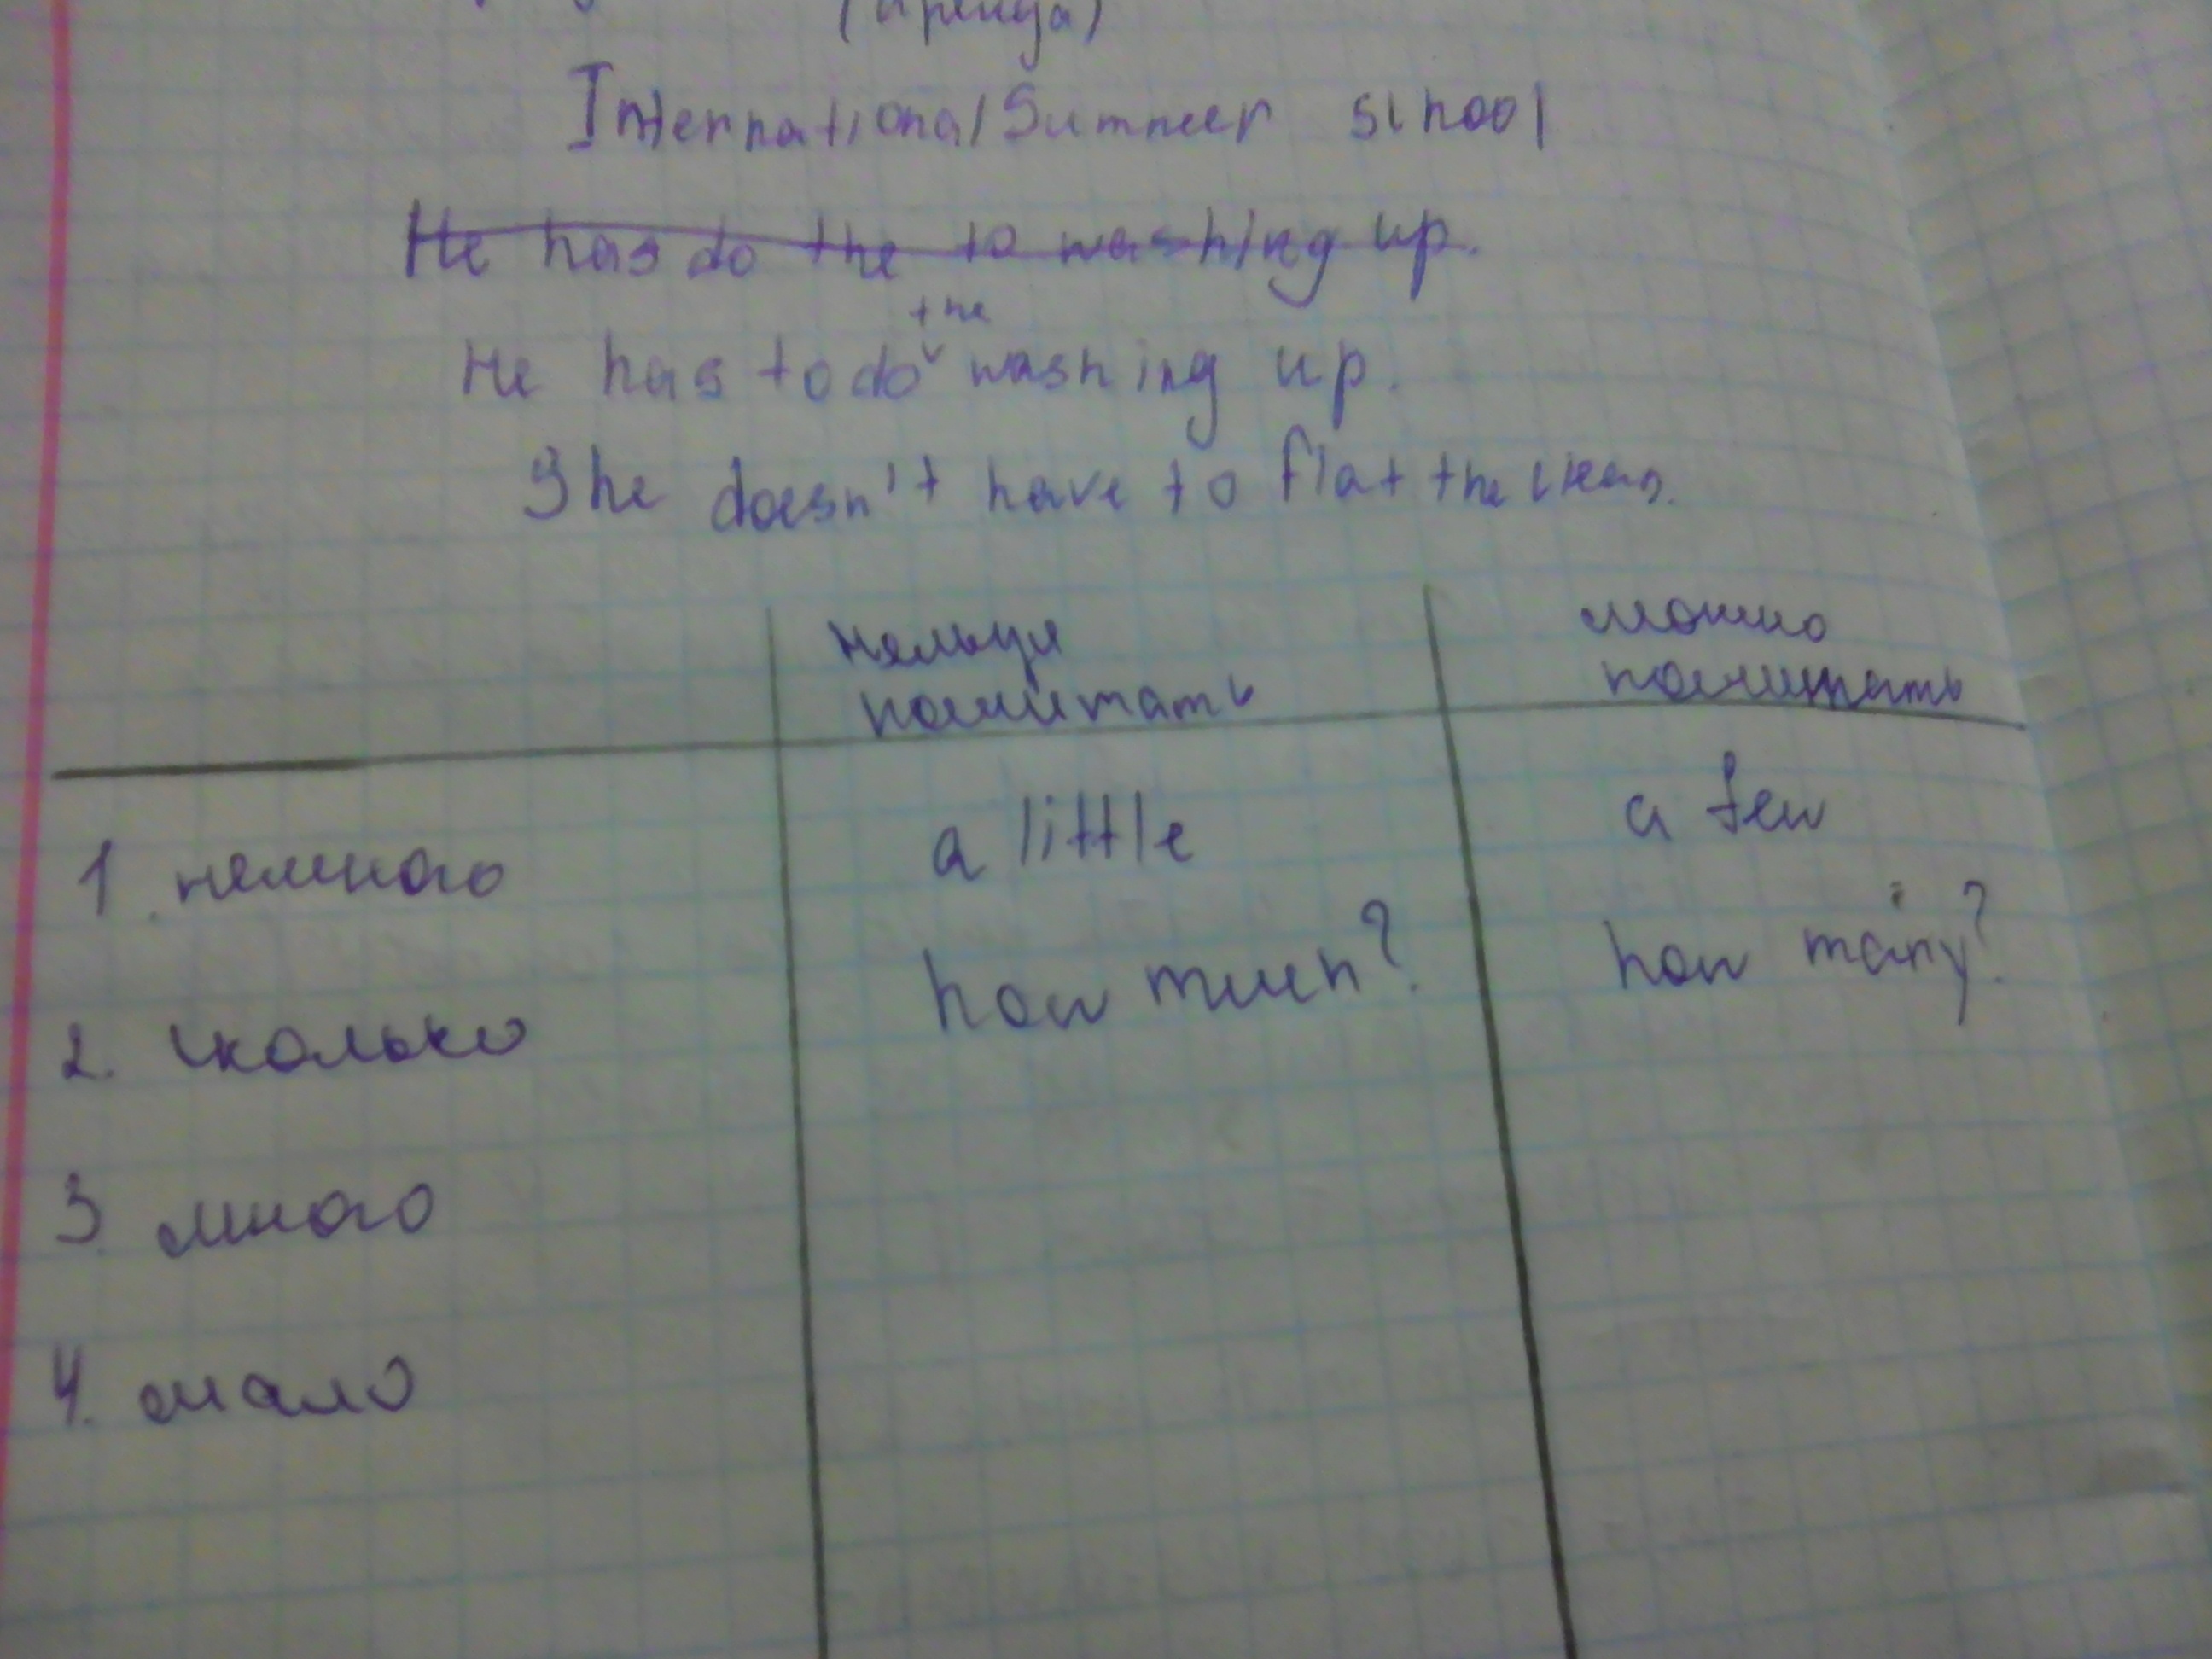 (аренда)
International Summer school
He has do the to washing up.
the
He has to do washing up.
She doesn't have to flat the clean.
нельзя можно
посчитать посчитать
1. немного a little a few
2. сколько how much? how many?
3. много
4. мало